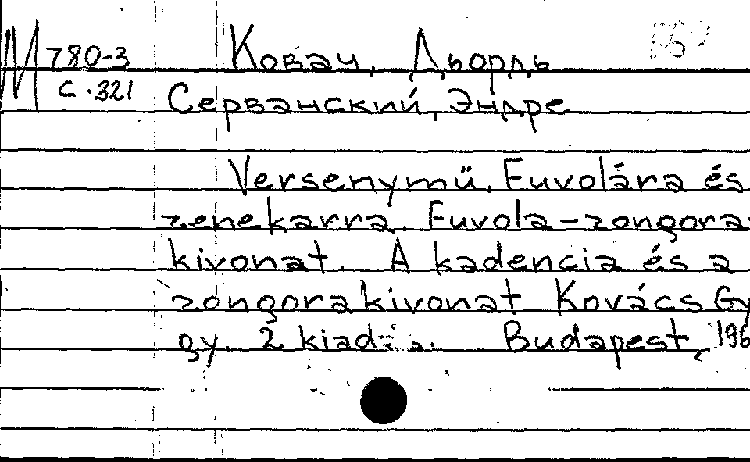 М 780-3 Ковач, Дьордь
с.321 Серванский, Эндре
Versenymű. Fuvolára és
zenekarra. Fuvola-zongora
kivonat. A kadencia és a
zongorakivonat Kovács Gy
gy. 2 kiadás. Budapest, 196